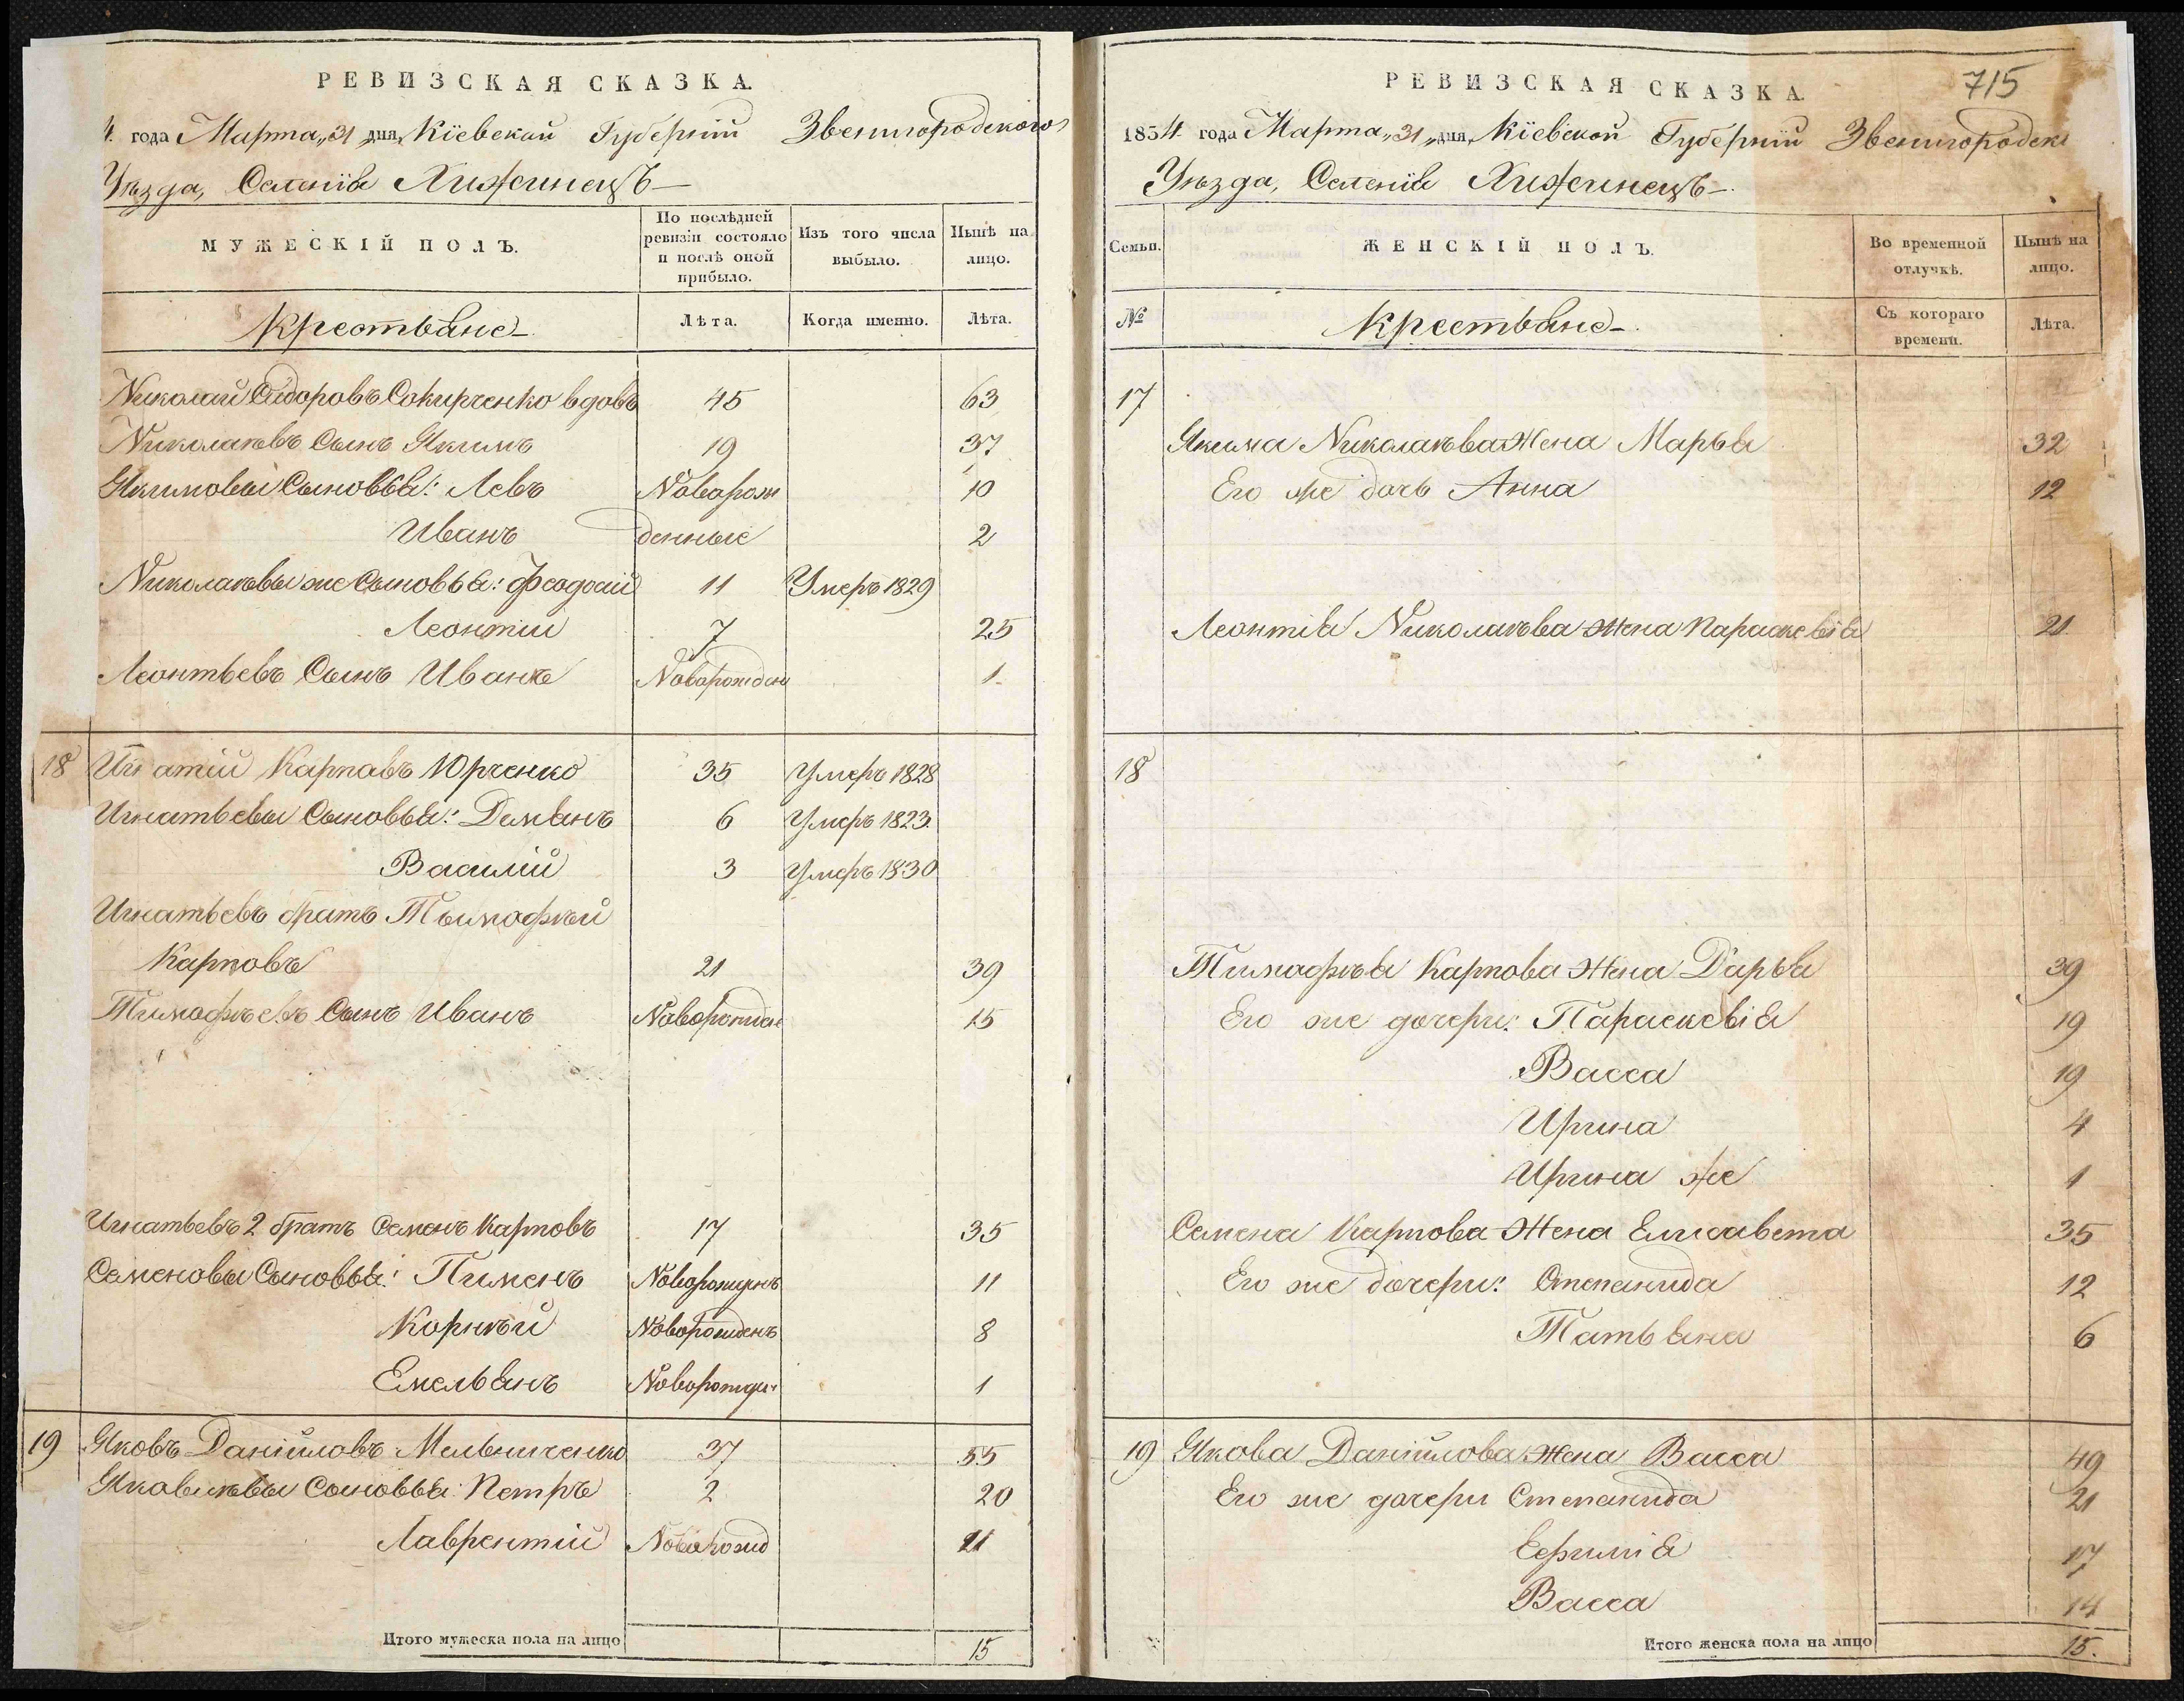 РЕВИЗСКАЯ СКАЗКА.
4. года Марта „31„ дня, Кіевской Губерніи Звенигородскаго
Уѣзда, Селенія Хижинецъ
МУЖЕСКІЙ ПОЛЪ.
По послѣдней ревизіи состояло и послѣ оной прибыло.
Изъ того числа выбыло.
Нынѣ на лицо.
Крестьяне
Лѣта.
Когда именно.
Лѣта.
Николай Сидоровъ Сокирченко вдовъ 45 63
Николаевъ Сынъ Якимъ 19 37
Якимовы Сыновья: Левъ Новорож 10
Иванъ денные 2
Николаевы же Сыновья: Феодосій 11 Умеръ 1829
Леонтій 7 25
Леонтьевъ Сынъ Иванъ Новорожден 1
18 Игнатій Карповъ Юрченко 35 Умеръ 1828
Игнатьевы Сыновья: Демьянъ 6 Умеръ 1823
Василій 3 Умеръ 1830
Игнатьевъ братъ Тымофѣй
Карповъ 21 39
Тимофѣевъ Сынъ Иванъ Новорожден 15
Игнатьевъ 2 братъ Семенъ Карповъ 17 35
Семеновы Сыновья: Пименъ Новорожденъ 11
Корнѣй Новорожденъ 8
Емельянъ Новорожден 1
19 Яковъ Даніиловъ Мельниченко 37 55
Яковлевы Сыновья: Петръ 2 20
Лаврентій Новорожд 11
Итого мужеска пола на лицо 15
715
РЕВИЗСКАЯ СКАЗКА.
1854 года Марта „31„ дня, Кіевской Губерніи Звенигородск
Уѣзда, Селенія Хижинецъ
Семьи.
ЖЕНСКІЙ ПОЛЪ.
Во временной отлучкѣ.
Нынѣ на лицо.
№
Крестьяне
Съ котораго времени.
Лѣта.
17
Якима Николаева Жена Марья 32
Его же дочь Анна 12
Леонтія Николаева Жена Параскевія 21
18
Тимофѣя Карпова Жена Дарья 39
Его же дочери: Параскевія 19
Васса 19
Ирина 4
Ирина же 1
Семена Карпова Жена Елисавета 35
Его же дочери: Степанида 12
Татьяна 6
19 Якова Даніилова Жена Васса 49
Его же дочери Степанида 21
Ефимія 17
Васса 14
Итого женска пола на лицо 15.